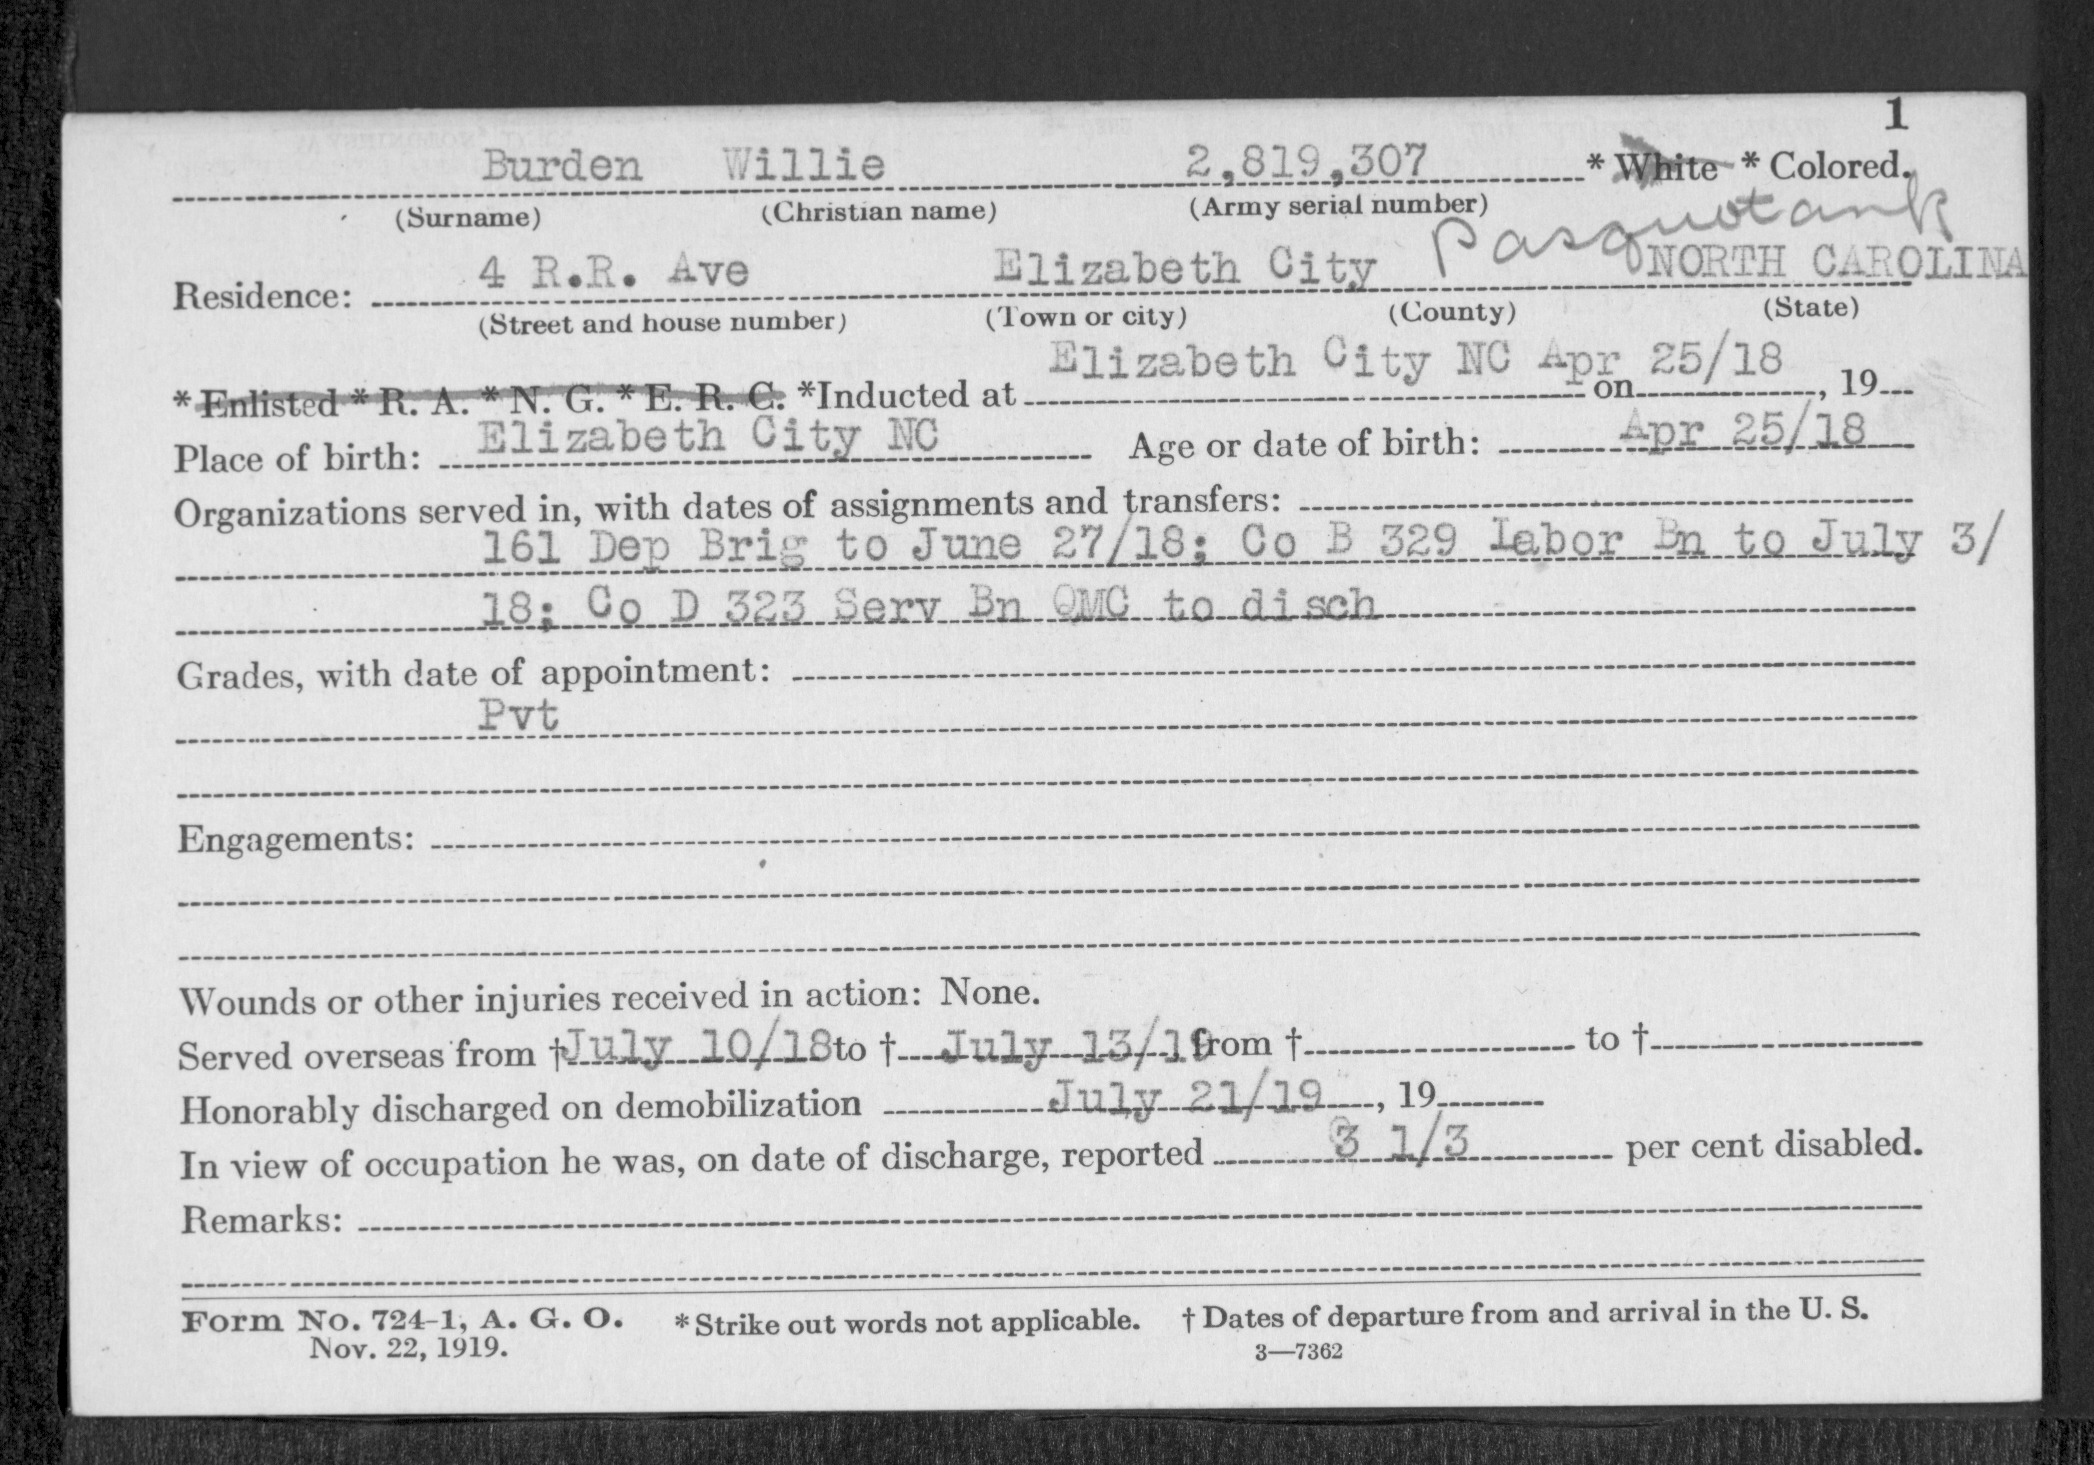 1
Burden Willie 2,819,307 * White * Colored.
(Surname) (Christian name) (Army serial number)
Pasquotank
Residence: 4 R.R. Ave Elizabeth City NORTH CAROLINA
(Street and house number) (Town or city) (County) (State)
* Enlisted * R. A. * N. G. * E. R. C. *Inducted at Elizabeth City NC Apr on 25/18, 19
Place of birth: Elizabeth City NC Age or date of birth: Apr 25/18
Organizations served in, with dates of assignments and transfers:
161 Dep Brig to June 27/18; Co B 329 Labor Bn to July 3/
18; Co D 323 Serv Bn QMC to disch
Grades, with date of appointment:
Pvt
Engagements:
Wounds or other injuries received in action: None.
Served overseas from † July 10/18 to † July 13/19, from † to †
Honorably discharged on demobilization July 21/19, 19
In view of occupation he was, on date of discharge, reported 3 1/3 per cent disabled.
Remarks:
Form No. 724-1, A. G. O. * Strike out words not applicable. † Dates of departure from and arrival in the U. S.
Nov. 22, 1919. 3—7362